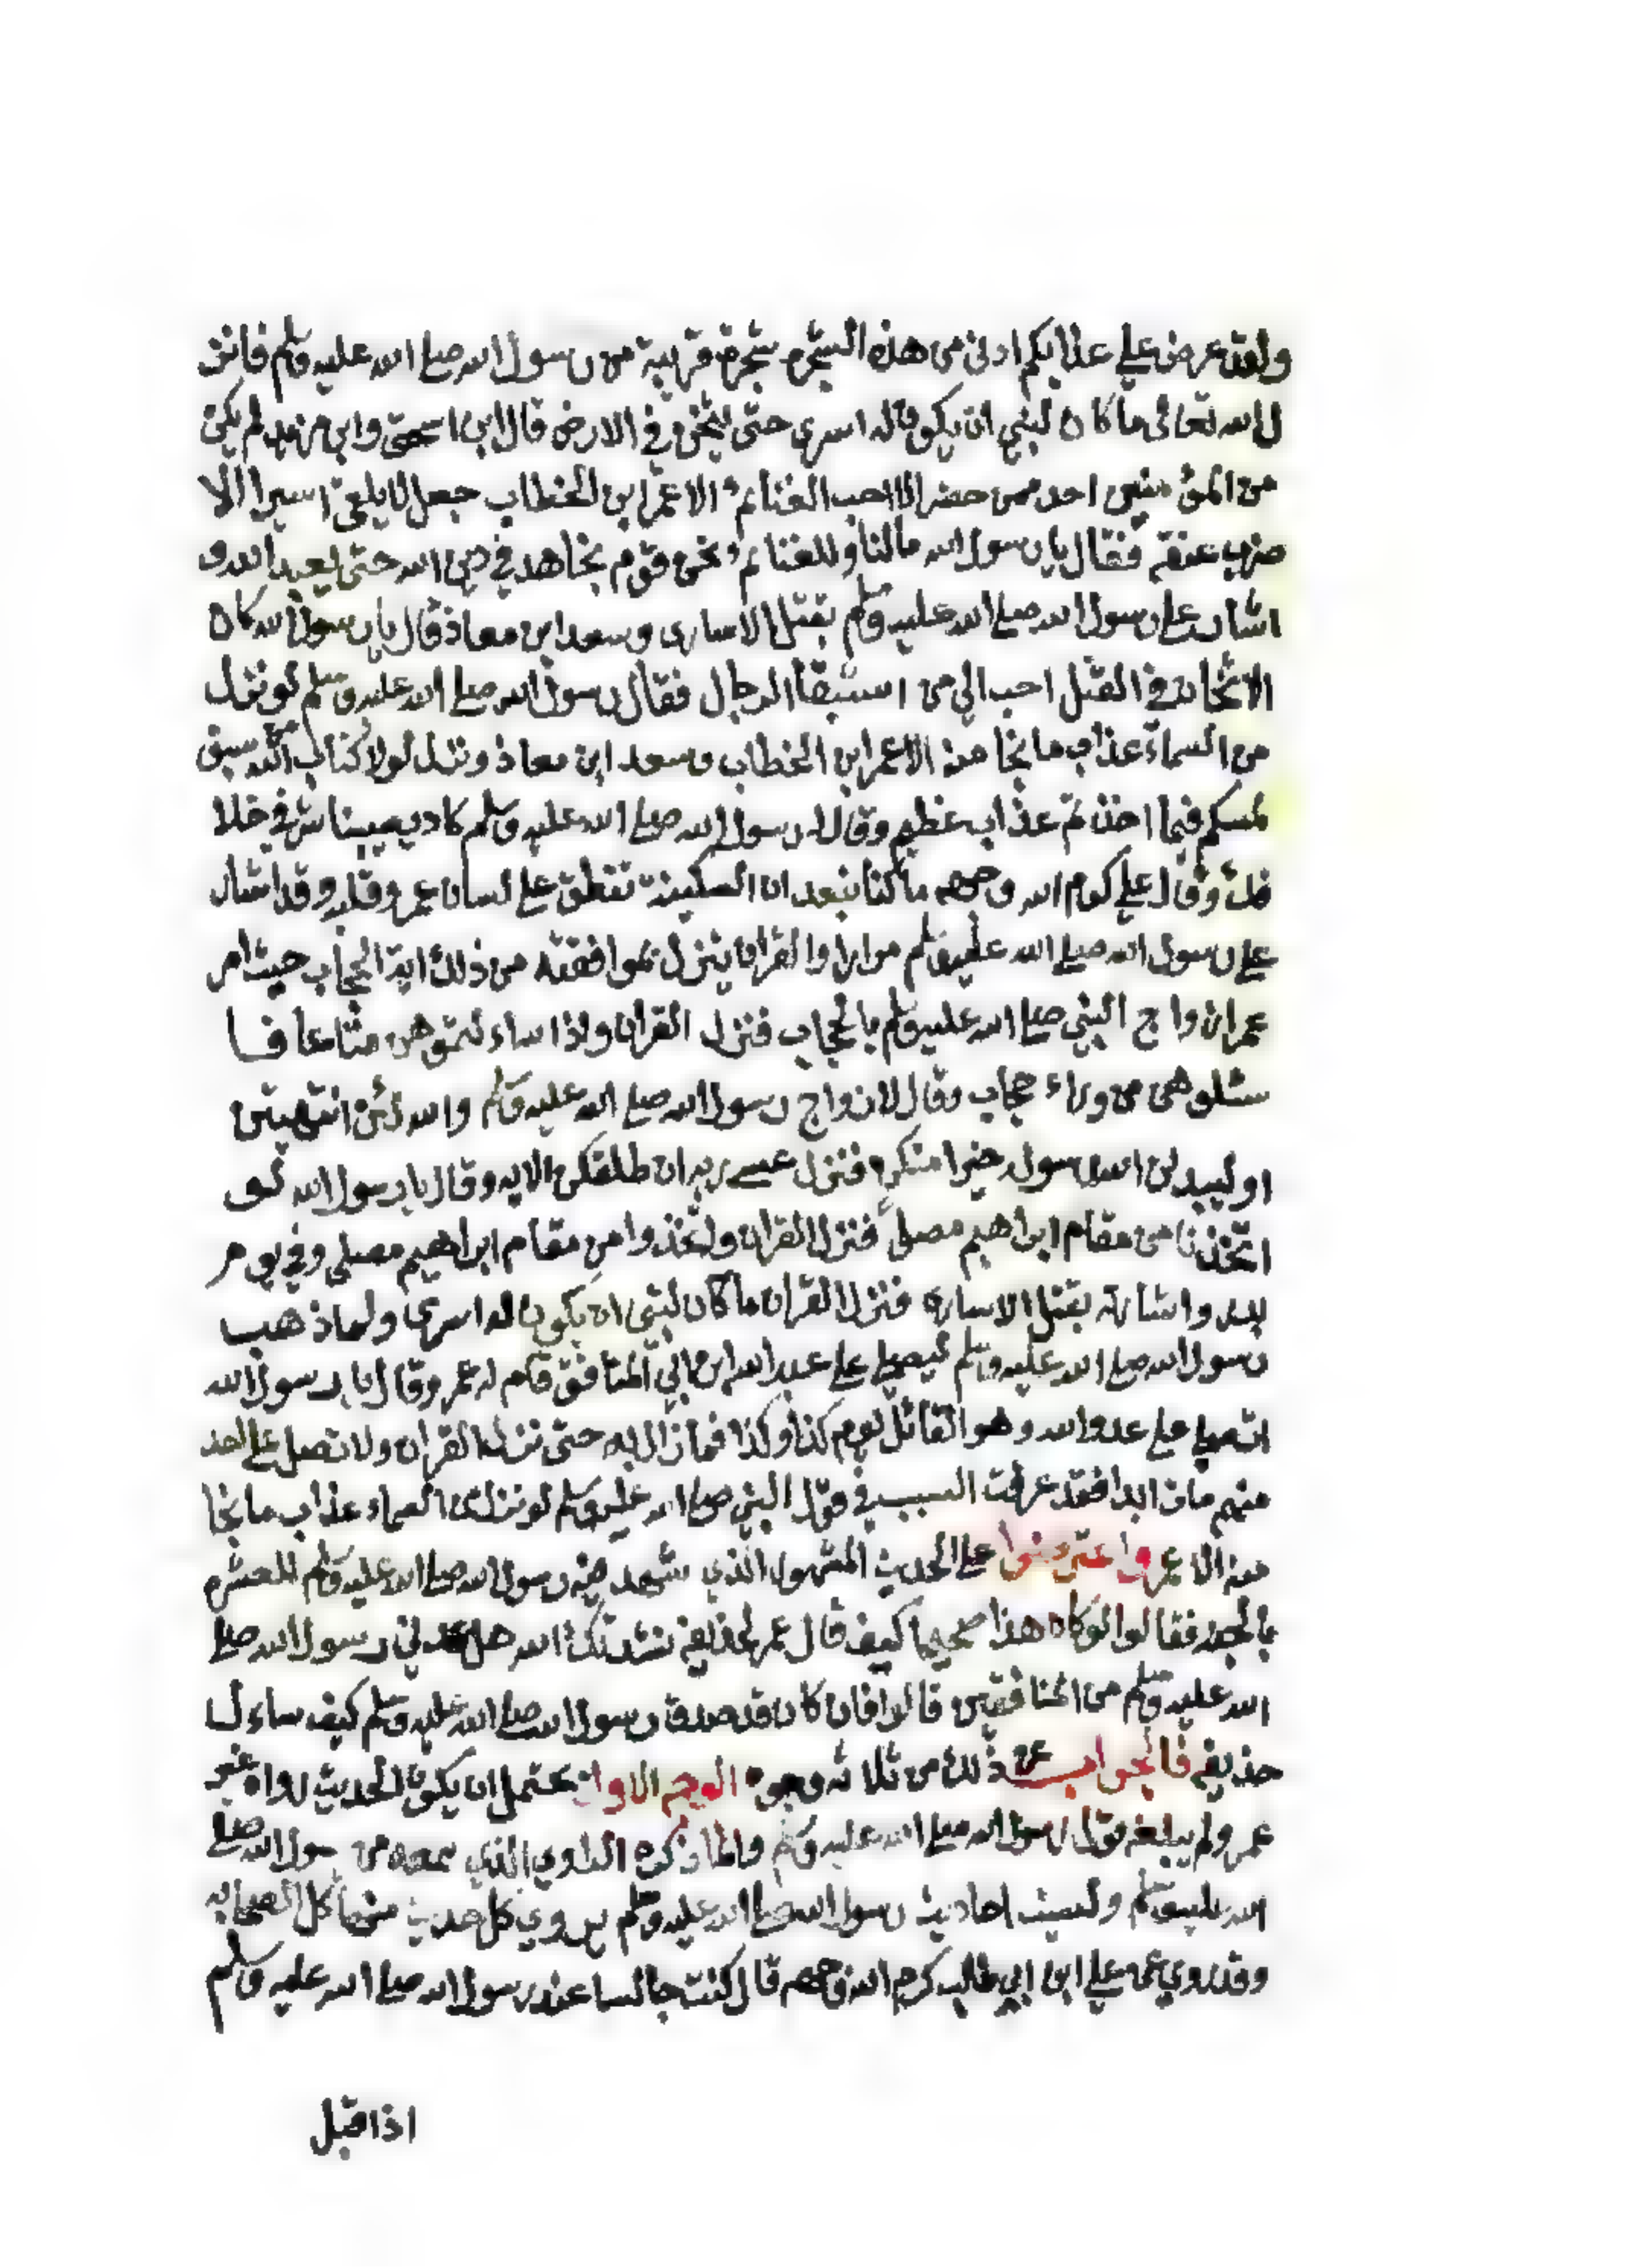 ولقد عرض علي عذابكم ادنى من هذه الشجره شجرة قريبة من رسول الله صلى الله عليه وسلم فانز
ل الله تعالى ما كان لنبي ان يكون له اسرى حتى يثخن في الارض قال ابن اسحق وابن زيد لم يكن
من المؤمنين احد ممن حضر الا احب الغنائم الا عمر ابن الخطاب جعل لا يلقى اسيرا الا
ضرب عنقه فقال يا رسول الله مالنا وللغنائم نحن قوم نجاهد في دين الله حتى يعبد الله و
اشار على رسول الله صلى الله عليه وسلم بقتل الاسارى وسعد ابن معاذ قال يا رسول الله كان
الاثخان في القتل احب الي من استبقا الرجال فقال رسول الله صلى الله عليه وسلم لو نزل
من السماء عذاب ما نجا منه الا عمر ابن الخطاب وسعد ابن معاذ ونزل لولا كتاب من الله سبق
لمسكم فيما اخذتم عذاب عظيم وقال رسول الله صلى الله عليه وسلم كاد يصيبنا شر في خلا
فك وقال علي كرم الله وجهه ما كنا نبعد ان السكينة تنطق على لسان عمر وقلبه وقد اشار
على رسول الله صلى الله عليه وسلم مرارا والقران ينزل بموافقته من ذلك اية الحجاب حيث امر
عمر ازواج النبي صلى الله عليه وسلم بالحجاب فنزل القران واذا سالتموهن متاعا فا
سئلوهن من وراء حجاب وقال لازواج رسول الله صلى الله عليه وسلم والله لئن انتهيتن
او ليبدلن الله رسوله خيرا منكن فنزل عسى ربه ان طلقكن الايه وقال يا رسول الله لو
اتخذنا من مقام ابراهيم مصلى فنزل القران واتخذوا من مقام ابراهيم مصلى وفي يوم
بدر واشارته بقتل الاسارى فنزل القران ما كان لنبي ان يكون له اسرى ولما ذهب
رسول الله صلى الله عليه وسلم ليصلي على عبد الله ابن ابي المنافق قام له عمر وقال يا رسول الله
اتصلي على عدو الله وهو القائل يوم كذا وكذا فما زال به حتى نزل القران ولا تصل على احد
منهم مات ابدا فقد عرفت السبب في قول النبي صلى الله عليه وسلم لو نزل من السماء عذاب ما نجا
منه الا عمر واعترضوا على الحديث المشهور الذي شهد فيه رسول الله صلى الله عليه وسلم للعشره
بالجنه فقالوا لو كان هذا صحيحا كيف قال عمر لحذيفه نشدتك الله هل عدني رسول الله صلى
الله عليه وسلم من المنافقين قالوا فان كان قد صدق رسول الله صلى الله عليه وسلم كيف ساءل
حذيفه فالجواب عن ذلك من ثلاثه وجوه الوجه الاول يحتمل ان يكون الحديث رواه غير
عمر ولم يبلغه قول رسول الله صلى الله عليه وسلم وانما ذكره الراوي الذي سمعه من رسول الله صلى
الله عليه وسلم وليست احاديث رسول الله صلى الله عليه وسلم يروي كل حديث منها كل الصحابه
وقد روي عن علي ابن ابي طالب كرم الله وجهه قال كنت جالسا عند رسول الله صلى الله عليه وسلم
اذا قبل